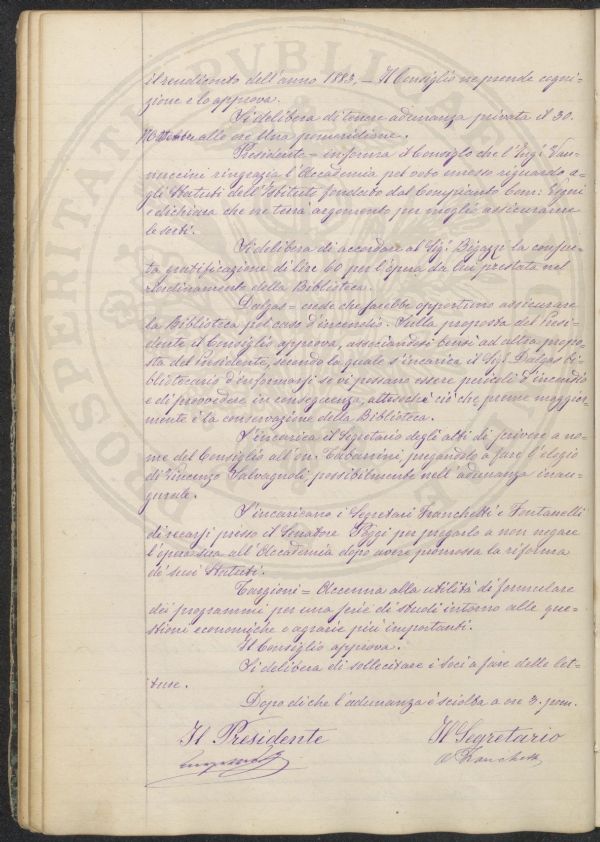 il rendiconto dell'anno 1883, — Il Consiglio ne prende cogni-
zione e lo approva.
Si delibera di tenere adunanza privata il 30.
9mbre alle ore Una pomeridiane.
Presidente = informa il Consiglio che l'Sig. Van-
nuccini ringrazia l'Accademia pel voto emesso riguardo a-
gli Statuti dell'Istituto fondato dal Compianto Com:
e dichiara che ne terrà argomento per meglio assicurarne
le sorti.
Si delibera di accordare al Sig. Bigazzi la consue-
ta gratificazione di lire 60 per l'opera da lui prestata nel
riordinamento della Biblioteca.
Dalgas = crede che sarebbe opportuno assicurare
la Biblioteca pel caso d'incendio. Sulla proposta del Presi-
dente il Consiglio approva, associandosi bensì ad altra propo-
sta del Presidente, secondo la quale s'incarica il Sig. Dalgas bi-
bliotecario d'informarsi se vi possano essere pericoli d'incendio
e di provvedere in conseguenza, attesochè ciò che preme maggior-
mente è la conservazione della Biblioteca.
S'incarica il Segretario degli atti di scrivere a no-
me del Consiglio all'on. Tabarrini pregandolo a fare l'elogio
di Vincenzo Salvagnoli possibilmente nell'adunanza inau-
gurale.
S'incaricano i Segretari Franchetti e Fontanelli
di recarsi presso il Senatore Poggi per pregarlo a non negare
l'opera sua all'Accademia dopo avere promossa la riforma
de' suoi Statuti.
Targioni = Accenna alla utilità di formulare
dei programmi per una serie di studi intorno alle que-
stioni economiche e agrarie più importanti.
Il Consiglio approva.
Si delibera di sollecitare i soci a fare delle let-
ture.
Dopo di che l'adunanza è sciolta a ore 3. pom.
Il Presidente
Il Segretario
A Franchetti
PROSPERITATI